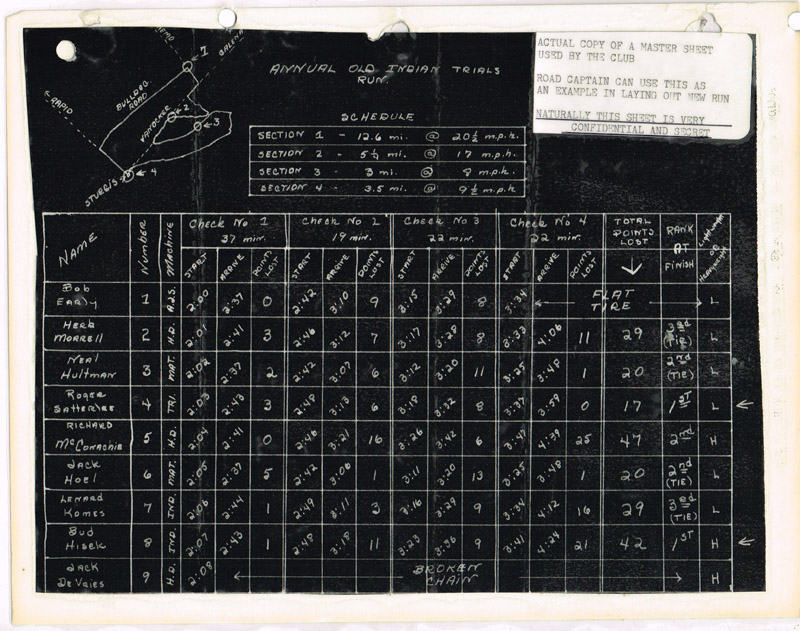 7
GALENA
BULLDOG
ROAD
RAPID
VANOCKER
2
3
4
STURGIS
ANNUAL OLD INDIAN TRIALS
RUN.
ACTUAL COPY OF A MASTER SHEET
USED BY THE CLUB
ROAD CAPTAIN CAN USE THIS AS
AN EXAMPLE IN LAYING OUT NEW RUN
NATURALLY THIS SHEET IS VERY
CONFIDENTIAL AND SECRET
SCHEDULE
SECTION 1 - 12.6 mi. @ 20½ m.p.h.
SECTION 2 - 5¼ mi. @ 17 m.p.h.
SECTION 3 - 3 mi. @ 8 m.p.h.
SECTION 4 - 3.5 mi. @ 9½ m.p.h
NAME Number MACHINE Check No 1 Check No 2 Check No 3 Check No 4 TOTAL POINTS LOST RANK AT FINISH LIGHTWEIGHT OR HEAVYWEIGHT
37 min. 19 min. 22 min. 22 min.
START ARRIVE POINTS LOST START ARRIVE POINTS LOST START ARRIVE POINTS LOST START ARRIVE POINTS LOST
Bob Early 1 AJS. 2:00 2:37 0 2:42 3:10 9 3:15 3:29 8 3:34 FLAT TIRE L
Herb Morrell 2 H.D. 2:01 2:41 3 2:46 3:12 7 3:17 3:28 8 3:33 4:06 11 29 3rd (TIE) L
Neal Hultman 3 MAT. 2:02 2:37 2 2:42 3:07 6 3:12 3:20 11 3:25 3:48 1 20 2nd (TIE) L
Roger Satterlee 4 TRI. 2:03 2:43 3 2:48 3:13 6 3:18 3:32 8 3:37 3:59 0 17 1ST L
RICHARD McConachie 5 H.D. 2:04 2:41 0 2:46 3:21 16 3:26 3:42 6 3:47 4:39 25 47 2nd H
Jack Hoel 6 MAT. 2:05 2:37 5 2:42 3:06 1 3:11 3:20 13 3:25 3:48 1 20 2nd (TIE) L
Lenard Komes 7 IND. 2:06 2:44 1 2:49 3:11 3 3:16 3:29 9 3:34 4:12 16 29 3rd (TIE) L
Bud Hisek 8 IND. 2:07 2:43 1 2:48 3:18 11 3:23 3:36 9 3:41 4:24 21 42 1ST H
Jack DeVaies 9 H.D. 2:08 BROKEN CHAIN H